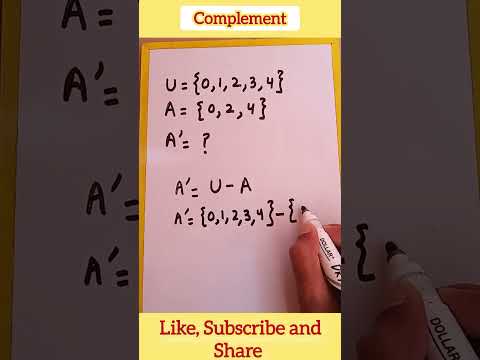 Complement
U = {0, 1, 2, 3, 4}
A = {0, 2, 4}
A' = ?
A' = U - A
A' = {0, 1, 2, 3, 4} - {
DOLLAR
Like, Subscribe and
Share